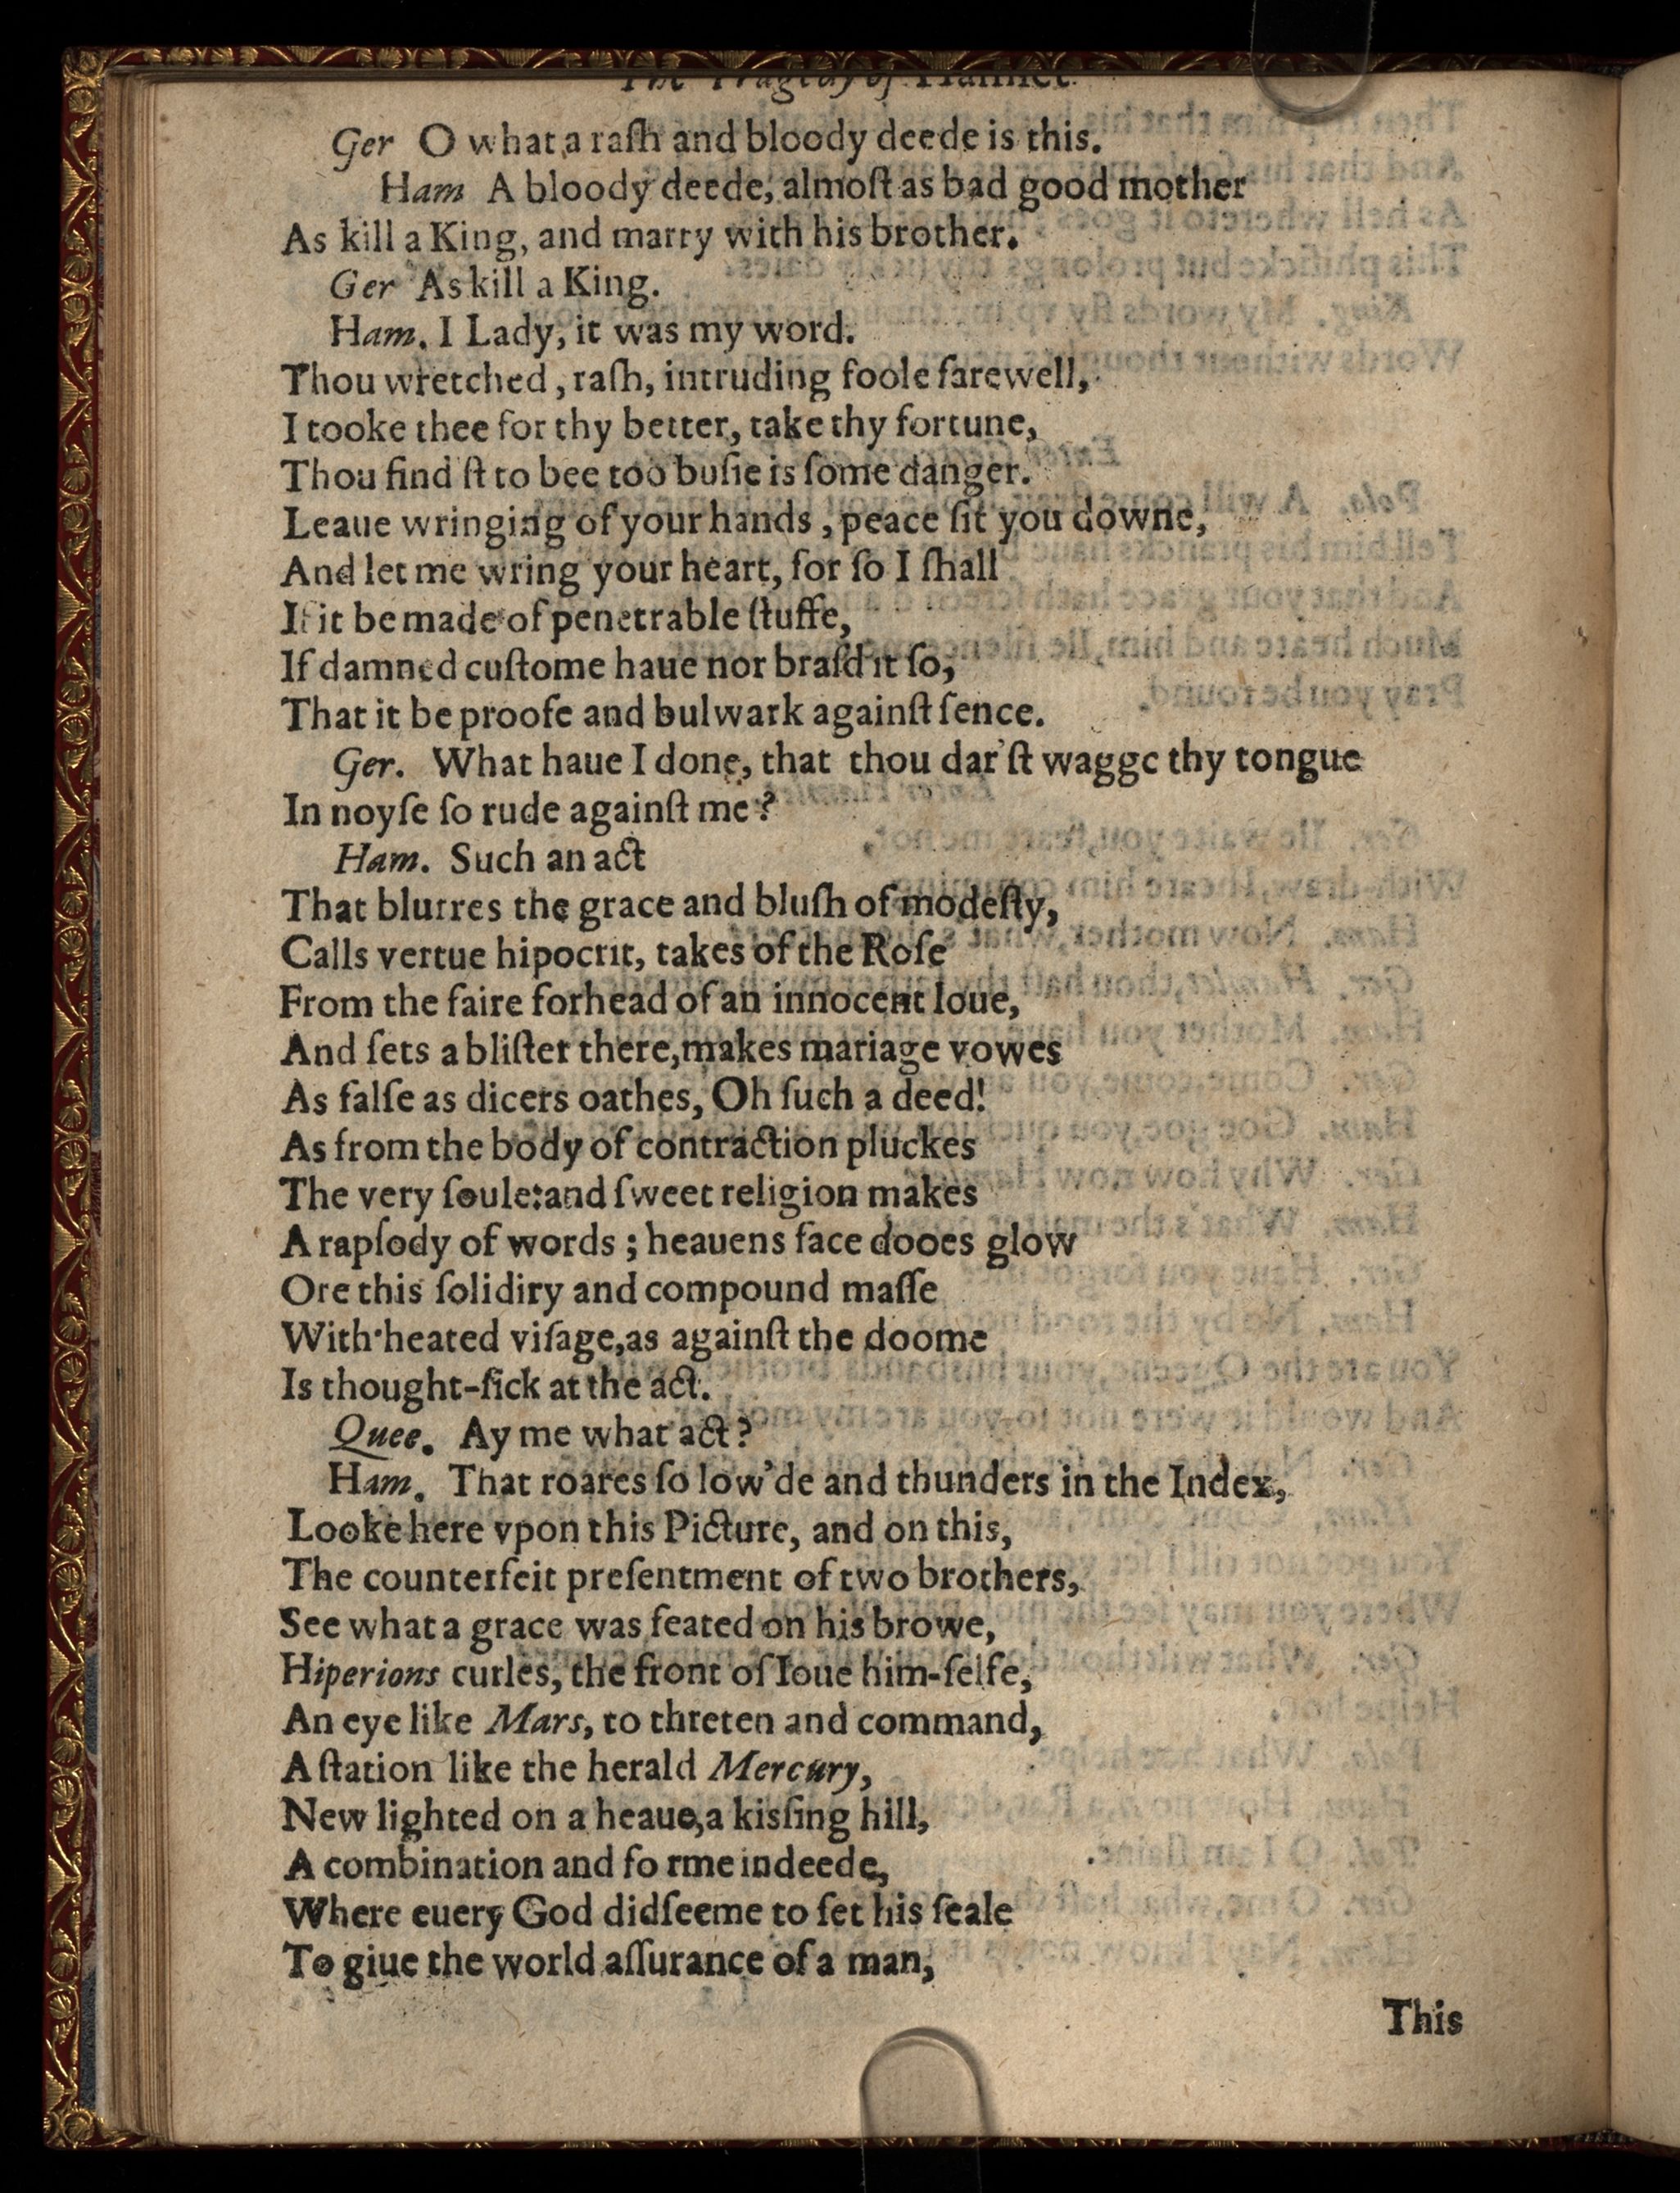 The Tragedy of Hamlet
Ger O what a raſh and bloody deede is this.
Ham A bloody deede, almoſt as bad good mother
As kill a King, and marry with his brother.
Ger As kill a King.
Ham. I Lady, it was my word.
Thou wretched, raſh, intruding foole farewell,
I tooke thee for thy better, take thy fortune,
Thou find ſt to bee too buſie is ſome danger.
Leaue wringing of your hands, peace ſit you downe,
And let me wring your heart, for ſo I ſhall
If it be made of penetrable ſtuffe,
If damned cuſtome haue nor braſd it ſo,
That it be proofe and bulwark againſt ſence.
Ger. What haue I done, that thou dar'ſt wagge thy tongue
In noyſe ſo rude againſt me?
Ham. Such an act
That blurres the grace and bluſh of modeſty,
Calls vertue hipocrit, takes of the Roſe
From the faire forhead of an innocent loue,
And ſets a bliſter there,makes mariage vowes
As falſe as dicers oathes, Oh ſuch a deed!
As from the body of contraction pluckes
The very ſoule:and ſweet religion makes
A rapſody of words; heauens face dooes glow
Ore this ſolidiry and compound maſſe
With heated viſage,as againſt the doome
Is thought-ſick at the act.
Quee. Ay me what act?
Ham. That roares ſo low'de and thunders in the Index,
Looke here vpon this Picture, and on this,
The counterfeit preſentment of two brothers,
See what a grace was ſeated on his browe,
Hiperions curles, the front of Ioue him-ſelfe,
An eye like Mars, to threten and command,
A ſtation like the herald Mercury,
New lighted on a heaue,a kisſing hill,
A combination and fo rme indeede,
Where euery God did ſeeme to ſet his ſeale
To giue the world aſſurance of a man,
This